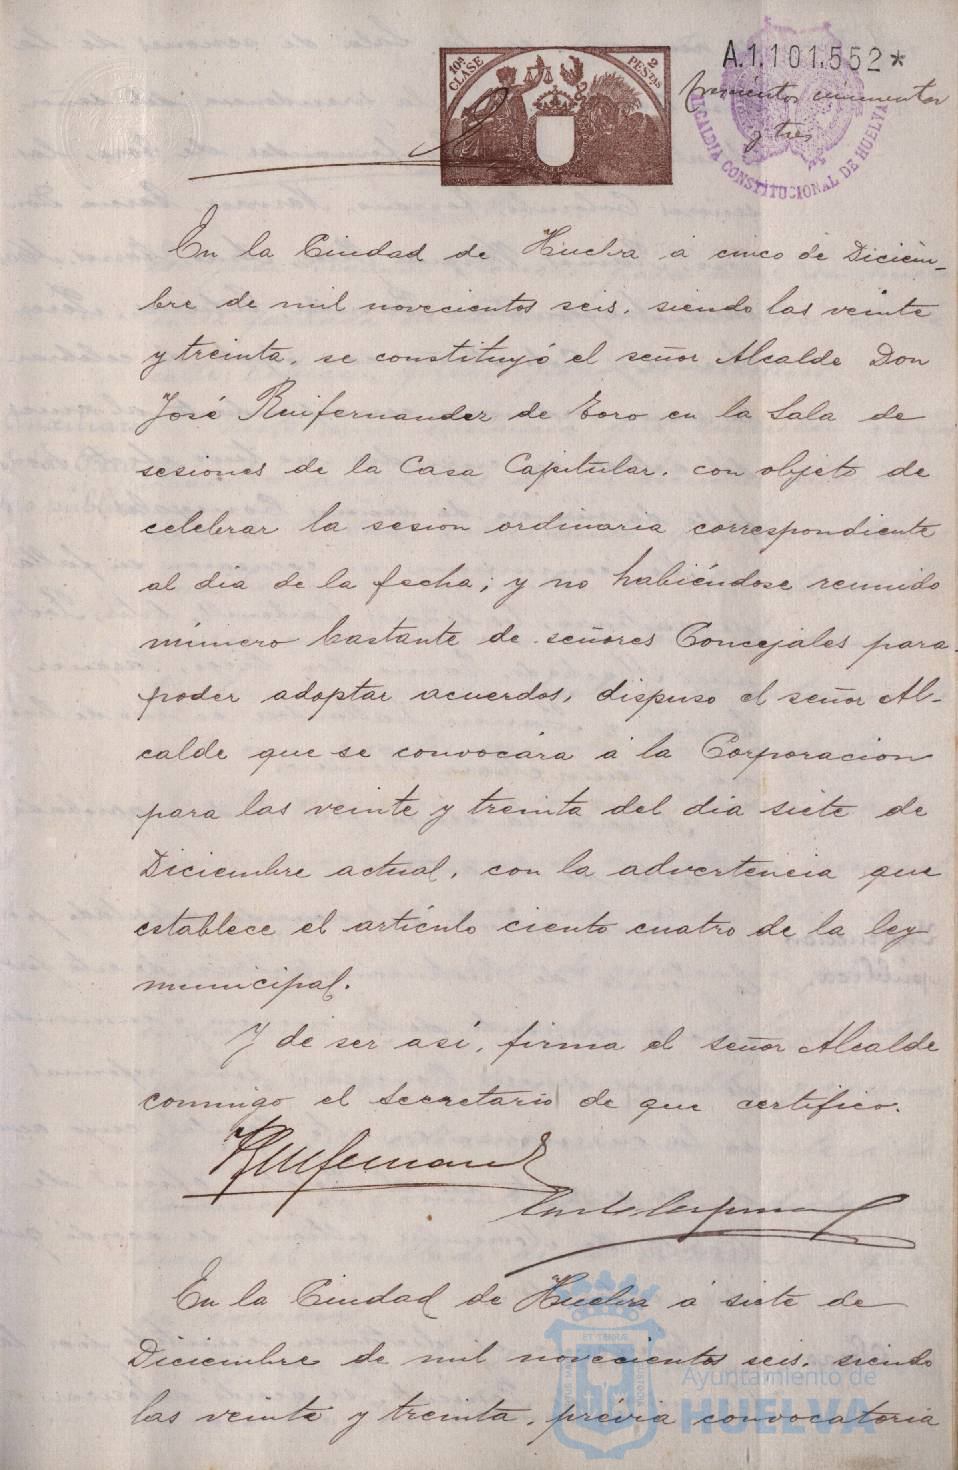 10ª CLASE
2 PESETAS
A.1.101.552*
ALCALDIA CONSTITUCIONAL DE HUELVA
y tres
En la Ciudad de Huelva á cinco de Diciem-
bre de mil novecientos seis, siendo las veinte
y treinta, se constituyó el señor Alcalde Don
José Ruifernandez de Toro en la Sala de
sesiones de la Casa Capitular, con objeto de
celebrar la sesion ordinaria correspondiente
al dia de la fecha; y no habiéndose reunido
número bastante de señores Concejales para
poder adoptar acuerdos, dispuso el señor Al-
calde que se convocára á la Corporacion
para las veinte y treinta del dia siete de
Diciembre actual, con la advertencia que
establece el artículo ciento cuatro de la ley
municipal.
Y de ser así, firma el señor Alcalde
conmigo el Secretario de que certifico.
Ruifernandez
En la Ciudad de Huelva á siete de
Diciembre de mil novecientos seis, siendo
las veinte y treinta, prévia convocatoria
Ayuntamiento de
HUELVA